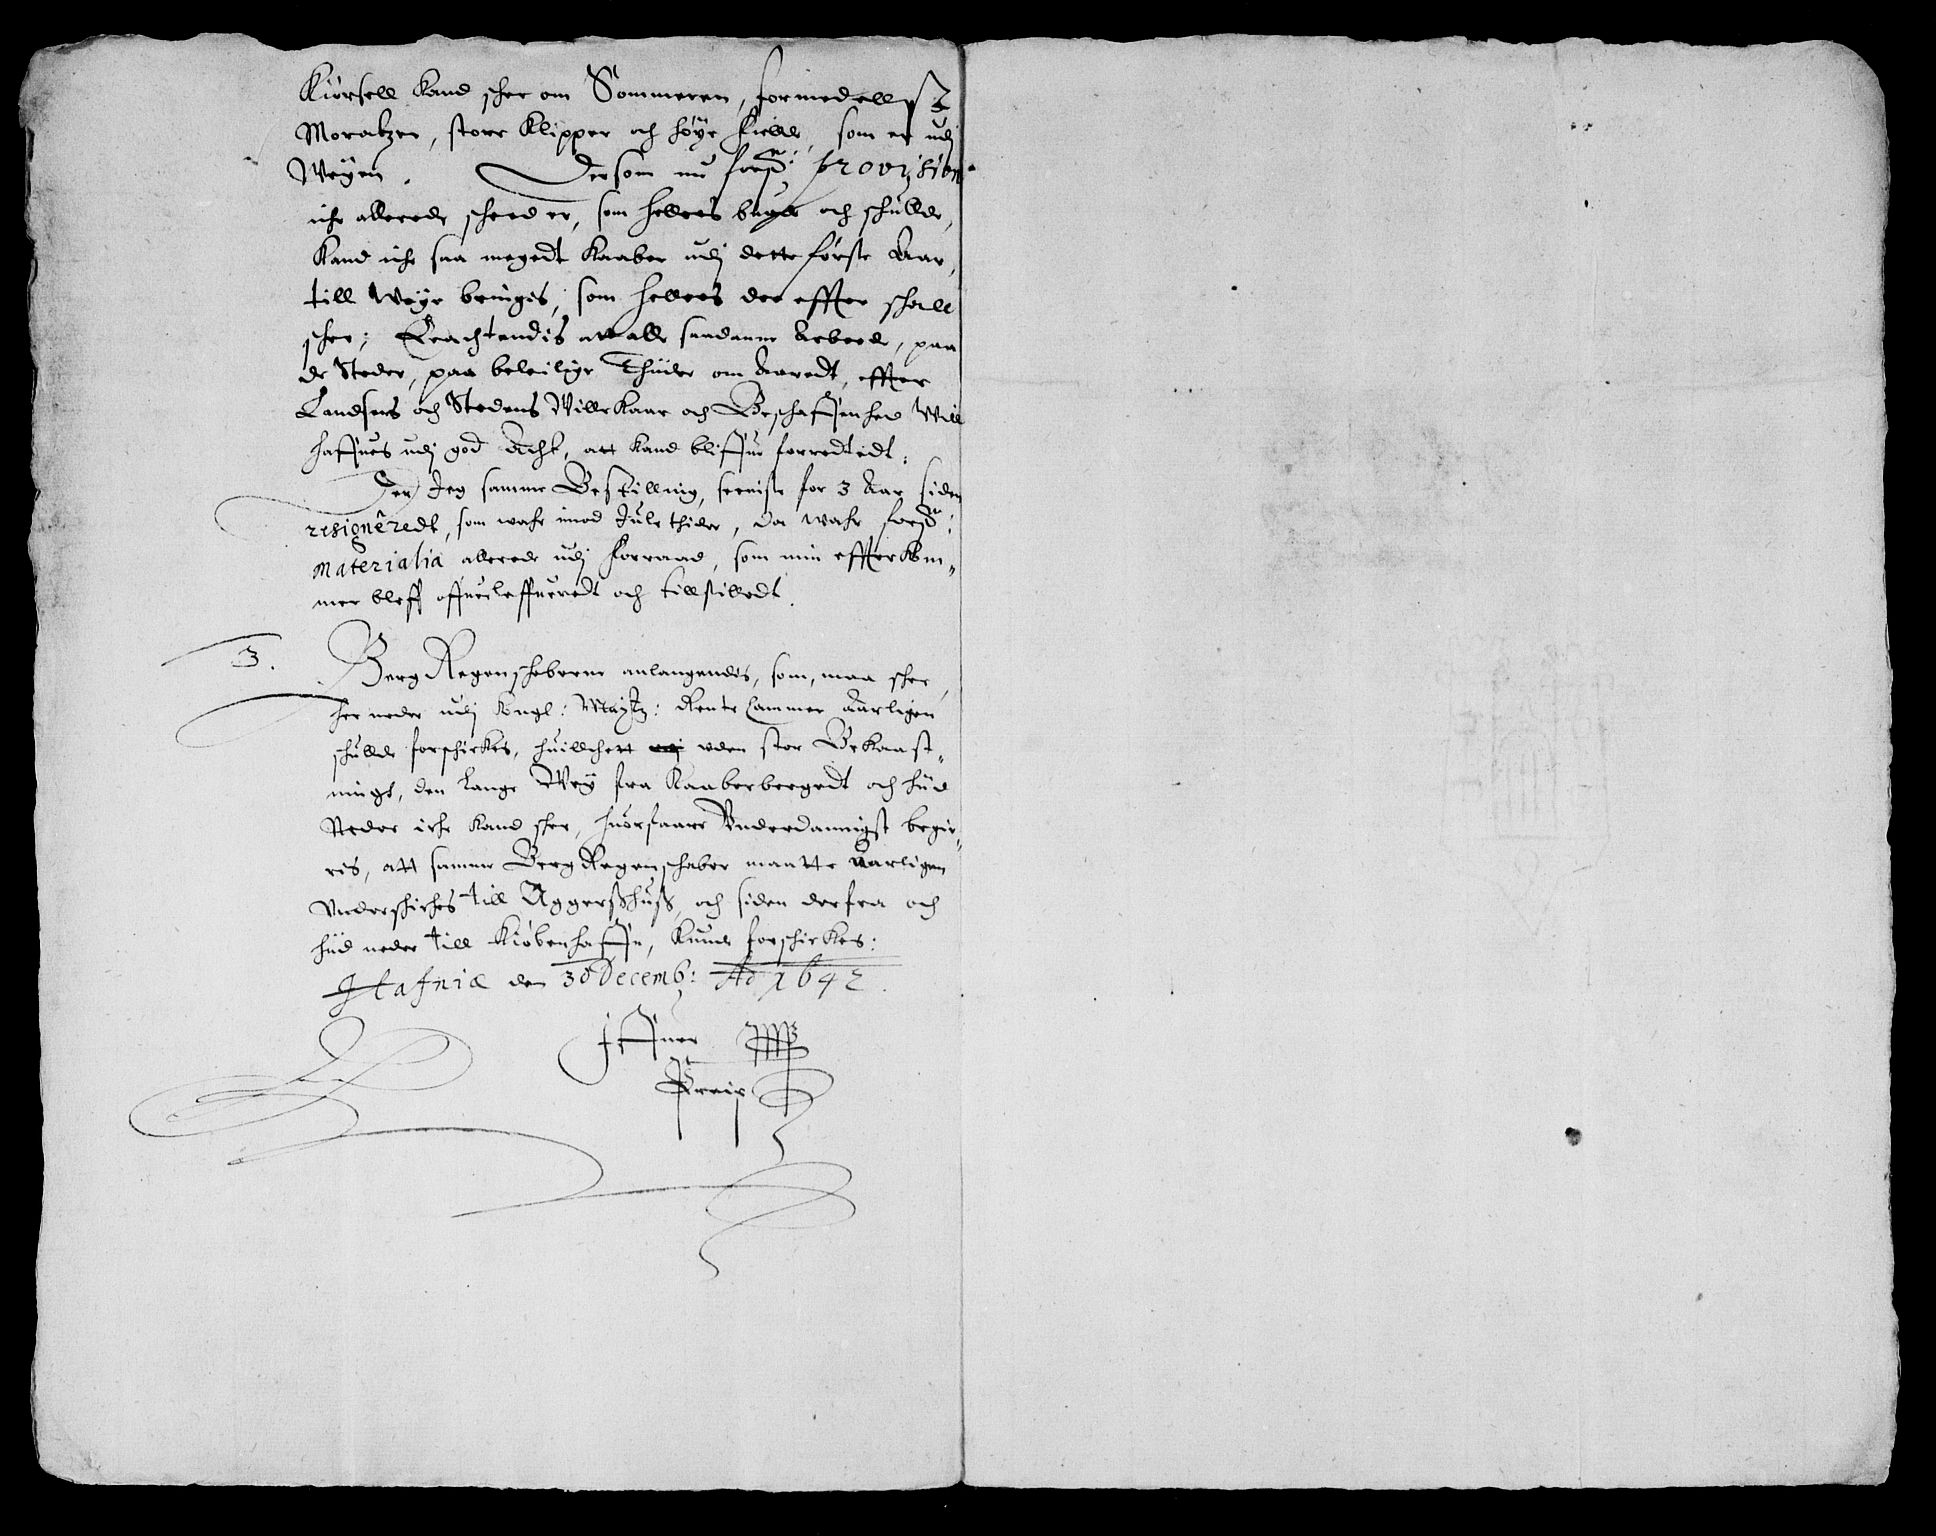 Kiørsell kand schee om Sommeren, formedellst
Moratzer, store Klipper och høye Fielde, som er udj
Weyen. Dersom nu forsne: provision
iche allerede scheed er, som hellers burde och schulde,
kand iche saa megedt Kaaber udj dette første Aar,
till weye bringis, som hellers der effter schall
schee; Erachtendis att alle saadanne Arbeede, paa
de Steder, paa beleilige Thiider om Aaredt, effter
Landsens och Stedens Willekaar och Beschaffenhed will
haffues udj god Acht, att kand bliffue forredtedt.
Der Jeg samme Bestilling, seeniste for 3 Aar siden
resigneredt, som wahr imod Jule thider, da wahr forsne:
materialia allerede udj Forraad, som min effterkom„
mer bleff offuerleffueredt och tillstilledt.
3. Berg Regenscheberne anlangendis, som, maa schee,
her neder udj Kongl: Maytz: Rente Cammer Aarligen
schulde forschickes, huillchett uden stor Bekaast„
ninge, den lange Wey fra Kaaberbergedt och hiid
Neder iche kand schee, huorfaare Underdannigst begie„
ris, att samme Berg Regenschaber maatte aarligen
Underschichis till Aggerszhusz, och siden derfra och
hiid neder till Kiøbenhaffn, kunde forschickes:
Hafniæ den 30 Decemb: Ao 1642.